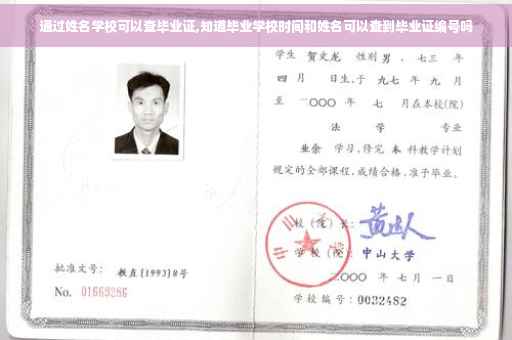 通过姓名学校可以查毕业证,知道毕业学校时间和姓名可以查到毕业证编号吗
学生 贺文龙 性别 男 、七三 年
四 月 日生,于 九七 年 九 月
至 二〇〇〇 年 七 月在本校(院)
法 学 专业
业余 学习,修完 本 科教学计划
规定的全部课程,成绩合格,准予毕业。
校(院)长:
学 校(院): 中山大学
二〇〇〇 年 七 月 一 日
学校编号:0032482
批准文号: 教直[1993]8号
No. 01669286